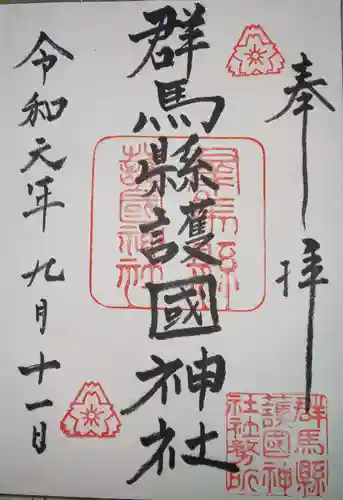 奉拝
群馬縣護國神社
令和元年九月十一日
群馬縣護國神社
群馬縣
護國神
社社務所